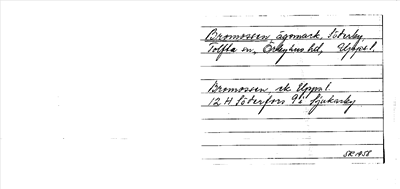 Bromossen, ägomark, Söderby,
Tolfta sn, Örbyhus hd, Uppsl.
Bromossen, ek Uppsl
12 H Söderfors 9i Sjukarby